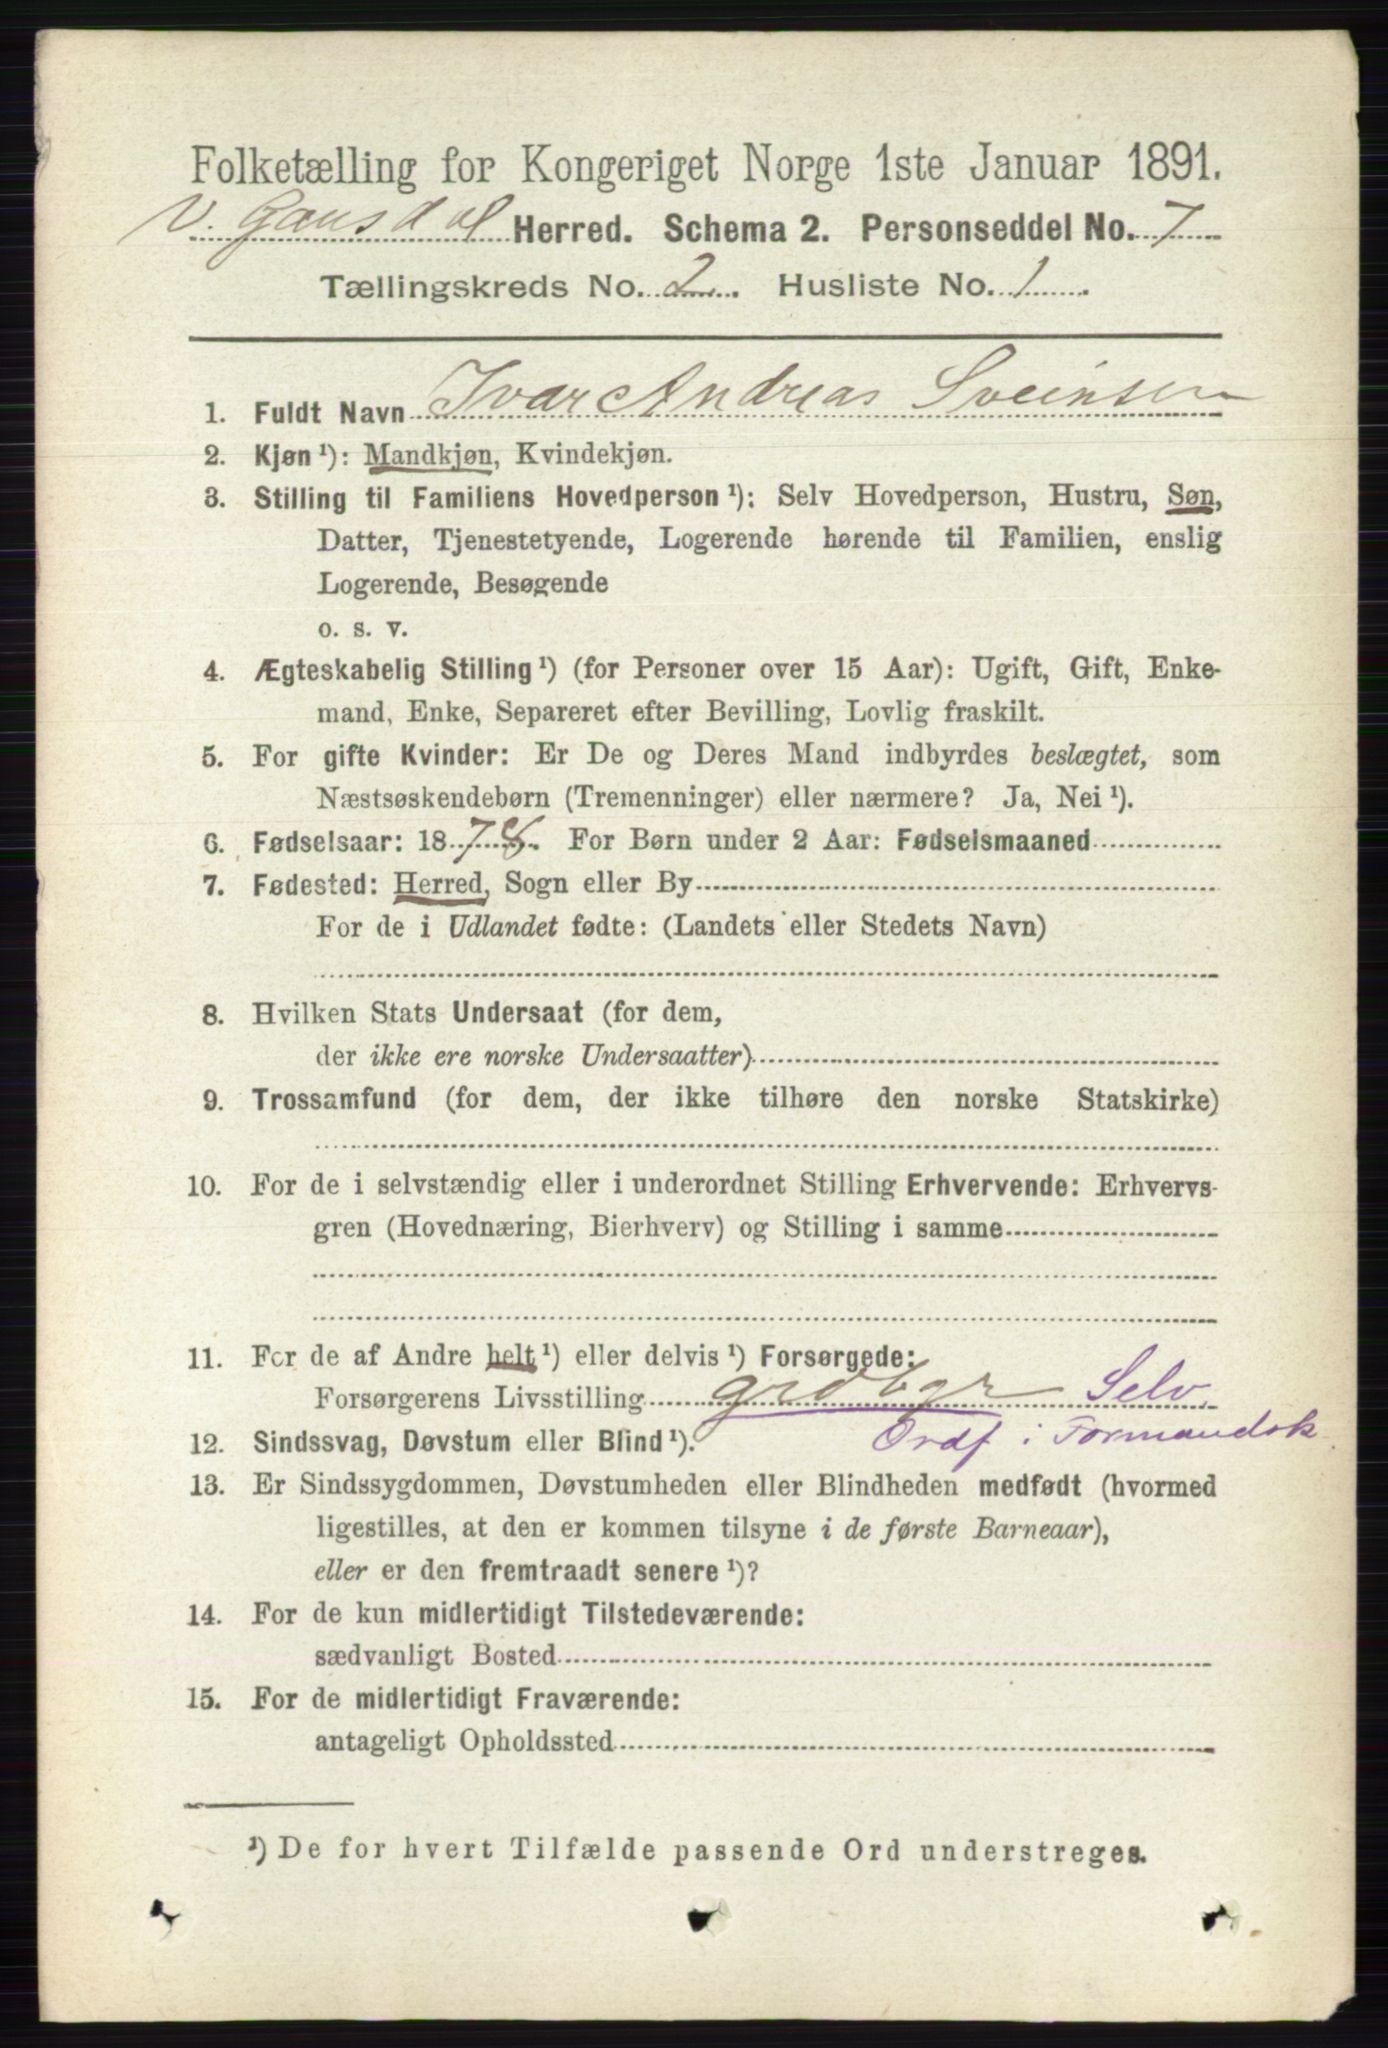 Folketælling for Kongeriget Norge 1ste Januar 1891.
V. Gausdal Herred. Schema 2. Personseddel No. 7
Tællingskreds No. 2. Husliste No. 1.
1. Fuldt Navn Ivar Andreas Sveinsen
2. Kjøn ¹): Mandkjøn, Kvindekjøn.
3. Stilling til Familiens Hovedperson ¹): Selv Hovedperson, Hustru, Søn,
Datter, Tjenestetyende, Logerende hørende til Familien, enslig
Logerende, Besøgende
o. s. v.
4. Ægteskabelig Stilling ¹) (for Personer over 15 Aar): Ugift, Gift, Enke-
mand, Enke, Separeret efter Bevilling, Lovlig fraskilt.
5. For gifte Kvinder: Er De og Deres Mand indbyrdes beslægtet, som
Næstsøskendebørn (Tremenninger) eller nærmere? Ja, Nei ¹).
6. Fødselsaar: 1878. For Børn under 2 Aar: Fødselsmaaned
7. Fødested: Herred, Sogn eller By
For de i Udlandet fødte: (Landets eller Stedets Navn)
8. Hvilken Stats Undersaat (for dem,
der ikke ere norske Undersaatter)
9. Trossamfund (for dem, der ikke tilhøre den norske Statskirke)
10. For de i selvstændig eller i underordnet Stilling Erhvervende: Erhvervs-
gren (Hovednæring, Bierhverv) og Stilling i samme
11. For de af Andre helt ¹) eller delvis ¹) Forsørgede:
Forsørgerens Livsstilling grdbgr Selv.
12. Sindssvag, Døvstum eller Blind ¹). Ordf i Formandsk
13. Er Sindssygdommen, Døvstumheden eller Blindheden medfødt (hvormed
ligestilles, at den er kommen tilsyne i de første Barneaar),
eller er den fremtraadt senere ¹)?
14. For de kun midlertidigt Tilstedeværende:
sædvanligt Bosted
15. For de midlertidigt Fraværende:
antageligt Opholdssted
¹) De for hvert Tilfælde passende Ord understreges.